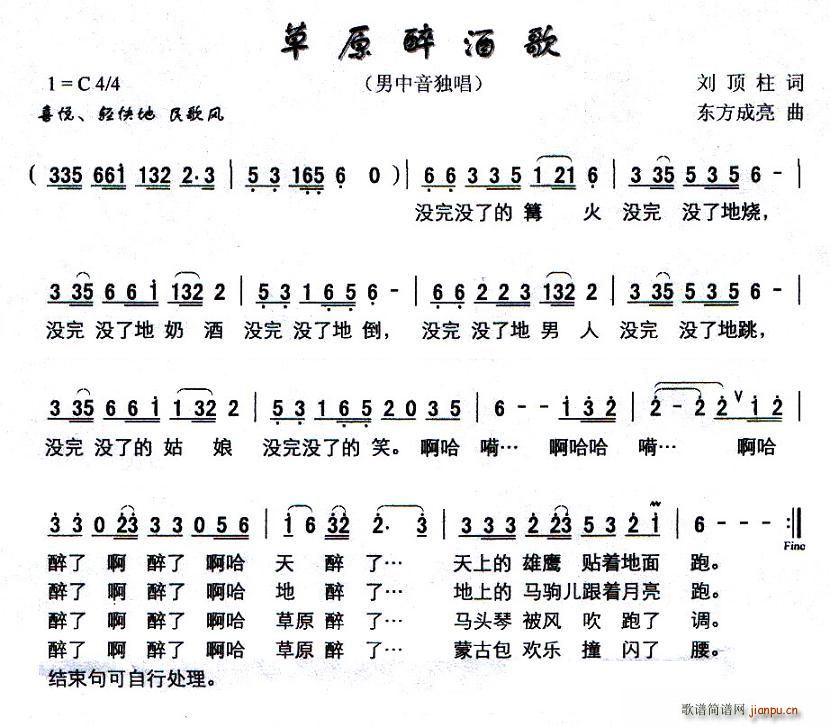 草原醉酒歌
1=C 4/4 （男中音独唱） 刘顶柱 词
喜悦、轻快地 民歌风 东方成亮 曲
( 335 661 132 2·3 | 5 3 165 6 0 ) | 6 6 3 3 5 1 21 6 | 3 35 5 3 5 6 - |
没完没了的 篝 火 没完 没了地烧，
3 35 6 6 1 132 2 | 5 3 1 6 5 6 - | 6 6 2 2 3 132 2 | 3 35 5 3 5 6 - |
没完 没了地 奶 酒 没完 没了地 倒， 没完 没了地 男 人 没完 没了地跳，
3 35 6 6 1 1 32 2 | 5 3 1 6 5 2 0 3 5 | 6 - - 1 3 2 | 2 - 2 2 V 1 2 |
没完 没了的 姑 娘 没完没了的 笑。 啊哈 嗬… 啊哈哈 嗬… 啊哈
3 3 0 23 3 3 0 5 6 | 1 6 32 2· 3 | 3 3 3 2 23 5 3 2 1 | 6 - - - :||
Fine
醉了 啊 醉了 啊哈 天 醉 了… 天上的 雄鹰 贴着地面 跑。
醉了 啊 醉了 啊哈 地 醉 了… 地上的 马驹儿跟着月亮 跑。
醉了 啊 醉了 啊哈 草原 醉 了… 马头琴 被风 吹 跑了 调。
醉了 啊 醉了 啊哈 草原 醉 了… 蒙古包 欢乐 撞 闪了 腰。
结束句可自行处理。
歌谱简谱网
jianpu.cn